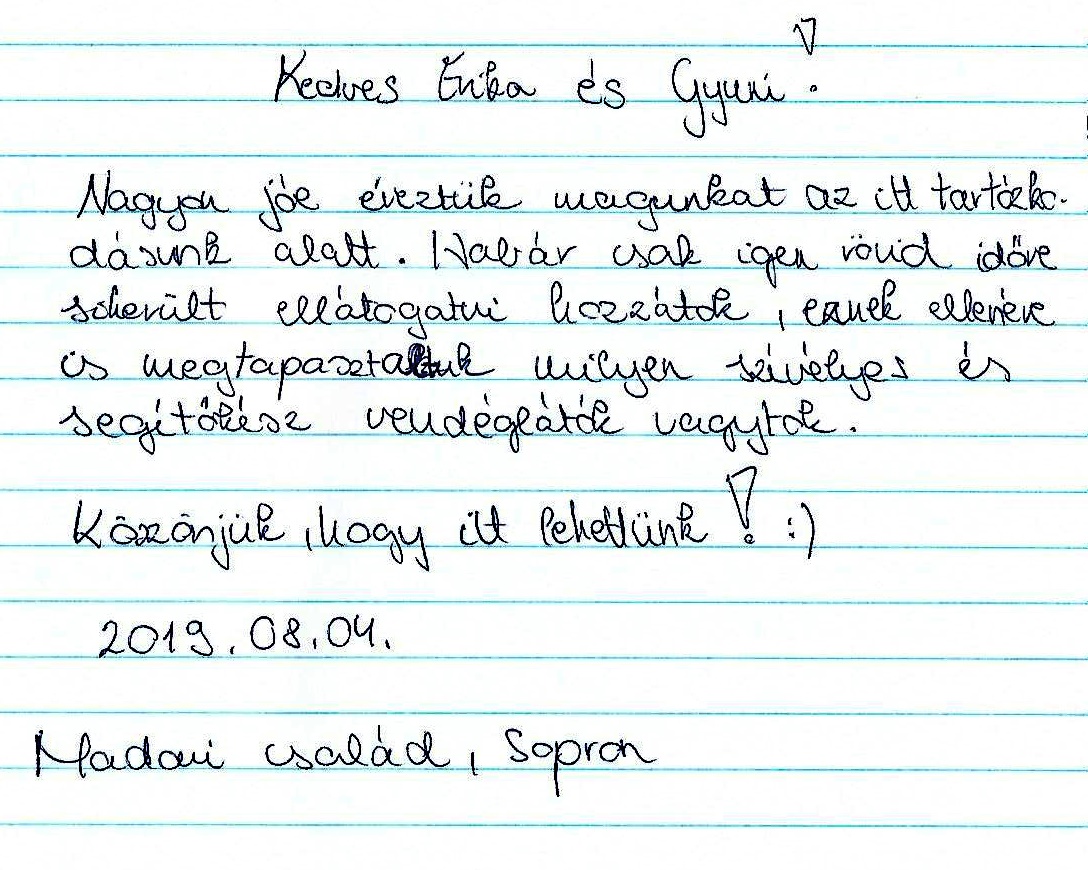 Kedves Erika és Gyuri!
Nagyon jól éreztük magunkat az itt tartózko-
dásunk alatt. Habár csak igen rövid időre
sikerült ellátogatni hozzátok, ennek ellenére
is megtapasztaltuk milyen szívélyes és
segítőkész vendéglátók vagytok.
Köszönjük, hogy itt lehettünk! :)
2019.08.04.
család, Sopron